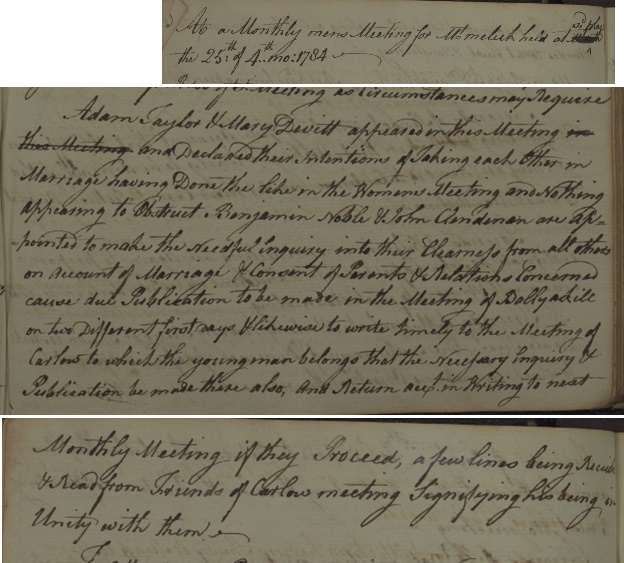 At a Monthly mens Meeting for Mt. melick held at sd. place
the 25th. of 4th. mo: 1784
of Meeting as Circumstances may Require
Adam Taylor & Mary Devitt appeared in this Meeting in
this Meeting and Declared their Intentions of Taking each Other in
Marriage having Done the like in the Womens Meeting and Nothing
appearing to Obstruct. Benjamin Noble & John Clendenan are ap=
=pointed to make the Needful Inquiry into their Clearness from all others
on account of Marriage & Consent of Parents & Relations Concerned
cause due Publication to be made in the Meeting of Ballyakill
on two Different first days & likewise to write timely to the Meeting of
Carlow to which the young man belongs that the Necessary Inquiry &
Publication be made there also, And Return acct. in Writing to next
Monthly Meeting if they Proceed, a few lines being Receivd
& Read from Friends of Carlow meeting Signifying his being in
Unity with them